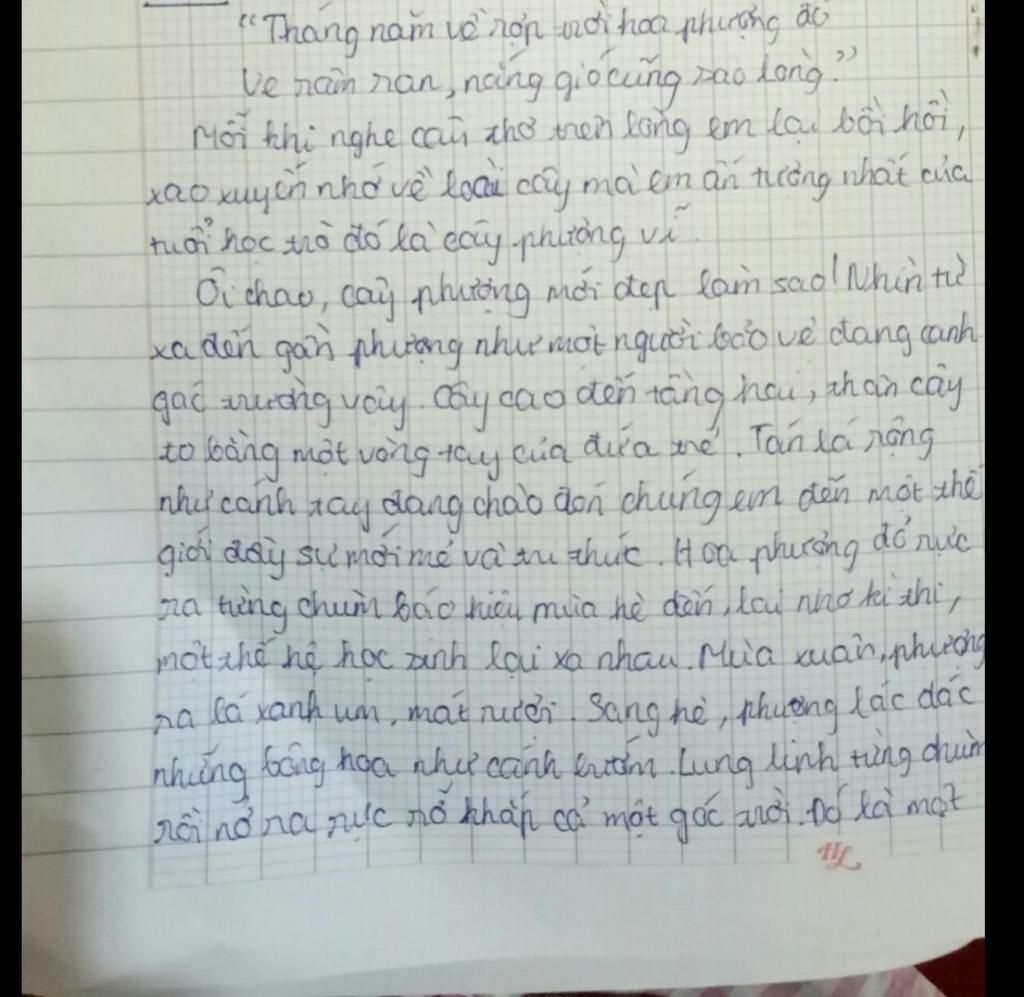 "Tháng năm về rợp trời hoa phượng đỏ
Ve ran ran, nắng gió cũng xao lòng."
Mỗi khi nghe câu thơ trên lòng em lại bồi hồi,
xao xuyến nhớ về loài cây mà em ấn tượng nhất của
tuổi học trò đó là cây phượng vĩ.
Ôi chao, cây phượng mới đẹp làm sao! Nhìn từ
xa đến gần phượng như một người bảo vệ đang canh
gác trường vậy. Cây cao đến tầng hai, thân cây
to bằng một vòng tay của đứa trẻ. Tán lá rộng
như cánh tay đang chào đón chúng em đến một thế
giới đầy sự mới mẻ và tri thức. Hoa phượng đỏ rực
ra từng chùm báo hiệu mùa hè đến, lại nhớ kì thi,
một thế hệ học sinh lại xa nhau. Mùa xuân, phượng
ra lá xanh um, mát rười. Sang hè, phượng lác đác
những bông hoa như cánh bướm. Lung linh từng chùm
rồi nở ra rực rỡ khắp cả một góc trời. Đó là một